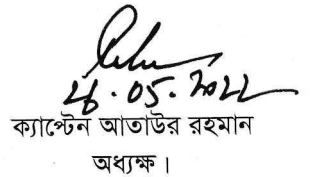 26.05.2022
ক্যাপ্টেন আতাউর রহমান
অধ্যক্ষ।